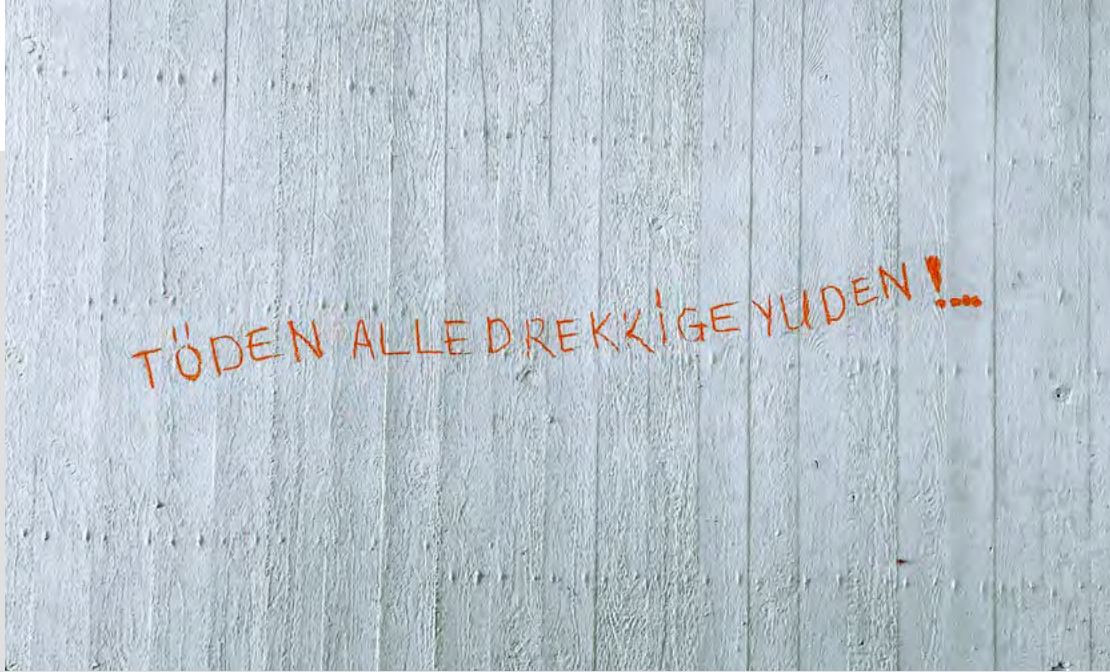 TÖDEN ALLE DREKKİGE YUDEN!...